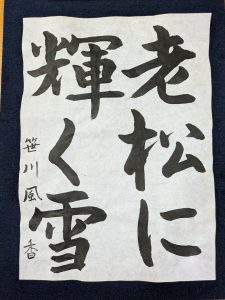 老松に
輝く雪
笹川風香